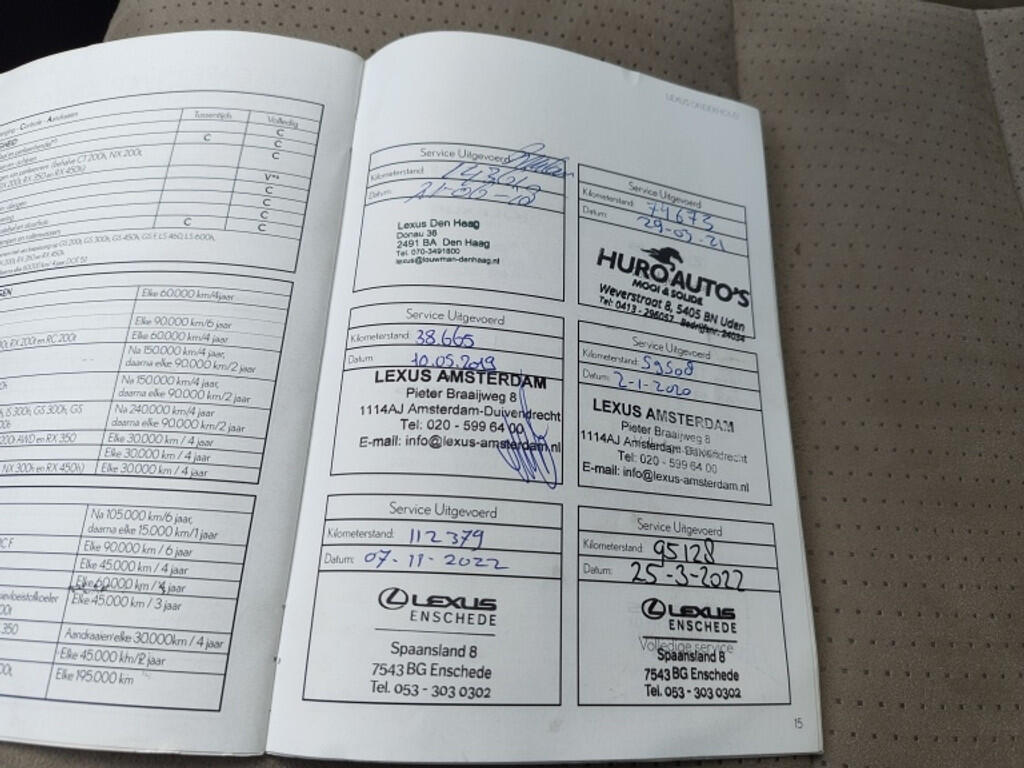 Tussentijds Volledig
C
C C
C
V
C
C
C
C C
Elke 60.000 km/4jaar
Elke 90.000 km/6 jaar
Elke 60.000 km/4 jaar
Na 150.000 km/4 jaar,
daarna elke 90.000 km/2 jaar
Na 150.000 km/4 jaar
daarna elke 90.000 km/2 jaar
GS 300h, GS
Na 240.000 km/4 jaar
daarna elke 90.000 km/2 jaar
AWD en RX 350
Elke 30.000 km / 4 jaar
Elke 30.000 km / 4 jaar
NX 300h en RX 450h)
Elke 30.000 km / 4 jaar
Na 105.000 km/6 jaar,
daarna elke 15.000 km/1 jaar
RC F
Elke 90.000 km / 6 jaar
Elke 45.000 km / 4 jaar
Elke 60.000 km / 4 jaar
Elke 45.000 km / 3 jaar
350
Aandraaien elke 30.000km / 4 jaar
Elke 45.000 km/2 jaar
Elke 195.000 km
LEXUS ONDERHOUD
Service Uitgevoerd
Kilometerstand:
Datum:
Lexus Den Haag
Donau 36
2491 BA Den Haag
Tel. 070-3491800
lexus@louwman-denhaag.nl
Service Uitgevoerd
Kilometerstand: 74673
Datum: 29-03-21
HURO AUTO'S
MOOI & SOLIDE
Weverstraat 8, 5405 BN Uden
Tel: 0413 - 296037 Bedrijfsnr. 24034
Service Uitgevoerd
Kilometerstand: 38.665
Datum: 10.05.2019
LEXUS AMSTERDAM
Pieter Braaijweg 8
1114AJ Amsterdam-Duivendrecht
Tel: 020 - 599 64 00
E-mail: info@lexus-amsterdam.nl
Service Uitgevoerd
Kilometerstand: 59508
Datum: 2-1-2020
LEXUS AMSTERDAM
Pieter Braaijweg 8
1114AJ Amsterdam-Duivendrecht
Tel: 020 - 599 64 00
E-mail: info@lexus-amsterdam.nl
Service Uitgevoerd
Kilometerstand: 112379
Datum: 07-11-2022
LEXUS
ENSCHEDE
Spaansland 8
7543 BG Enschede
Tel. 053 - 303 0302
Service Uitgevoerd
Kilometerstand: 95128
Datum: 25-3-2022
LEXUS
ENSCHEDE
Volledige service
Spaansland 8
7543 BG Enschede
Tel. 053 - 303 0302
15